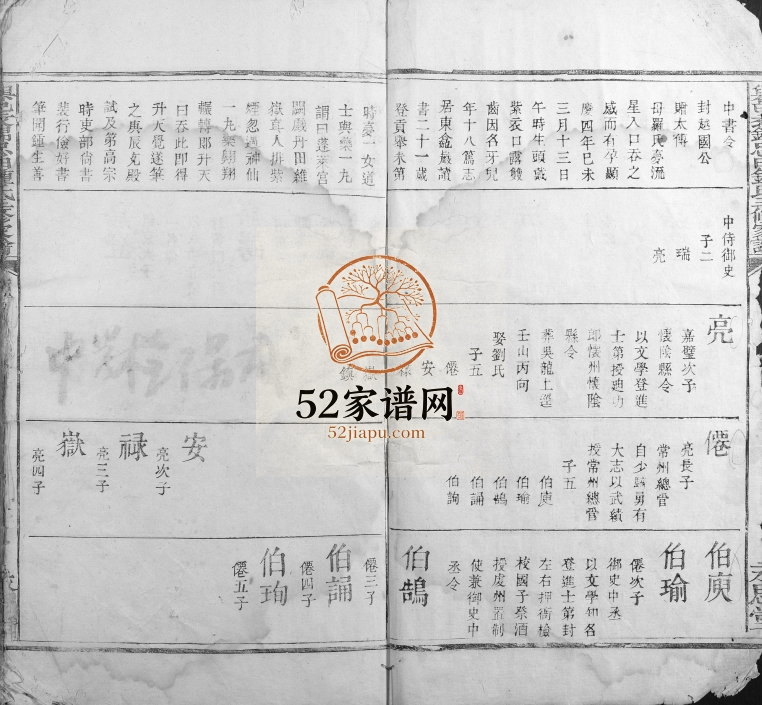 中書令
封越國公
贈太傅
母羅氏夢流
星入口吞之
感而有孕顯
慶四年己未
三月十三日
午時生頭戴
紫
齒因名牙兒
年十八篤志
居東龕巖讀
書二十一歲
登貢舉未第
時夢一女道
士與藥一九
謂曰蓬萊宮
闕戲丹田雜
嶽真人排紫
煙忽遇神仙
一九藥翱翔
輾轉卽升天
曰吞此卽得
升天覺遂筆
之與辰克殿
試及第高宗
時吏部尙書
裴行儉好書
筆開鍾生善
中侍御史
子二
瑞
亮
亮
嘉璧次子
懷陰縣令
以文學登進
士第授迪功
郎懷州懷陰
縣令
葬吳龍上逕
壬山丙向
娶劉氏
子五
僊
安
祿
嶽
鎮
僊
亮長子
常州總管
自少驍勇有
大志以武績
授常州總管
子五
伯庾
伯瑜
伯鵠
伯誦
伯詢
安
亮次子
祿
亮三子
嶽
亮四子
伯庾
伯瑜
僊次子
御史中丞
以文學知名
登進士第封
左右押衙檢
校國子祭酒
授處州置制
使兼御史中
丞令
伯鵠
僊三子
伯誦
僊四子
伯珣
僊五子
52家谱网
52jiapu.com